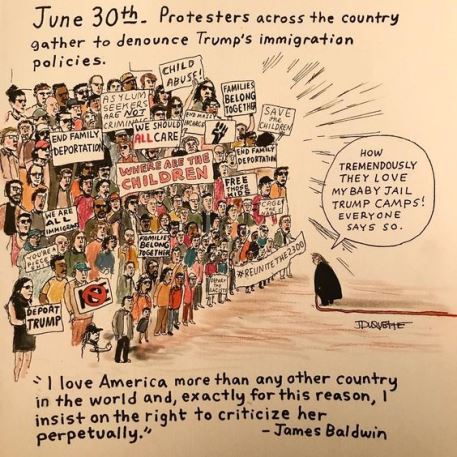 June 30th- Protesters across the country
gather to denounce Trump's immigration
policies.
CHILD
ABUSE!
FAMILIES
BELONG
TOGETHER
ASYLUM
SEEKERS
ARE NOT
CRIMINALS
SAVE
the
CHILDREN
WE SHOULD
ALL CARE
END FAMILY
DEPORTATION
END FAMILY
DEPORTATION
WHERE ARE THE
CHILDREN
FREE
THOSE
KIDS
WE ARE
ALL
IMMIGRANTS
FAMILIES
BELONG
TOGETHER
#REUNITETHE2300
DEPORT
TRUMP
HOW
TREMENDOUSLY
THEY LOVE
MY BABY JAIL
TRUMP CAMPS!
EVERYONE
SAYS SO.
J.DUQUETTE
"I love America more than any other country
in the world and, exactly for this reason, I
insist on the right to criticize her
perpetually."
-James Baldwin